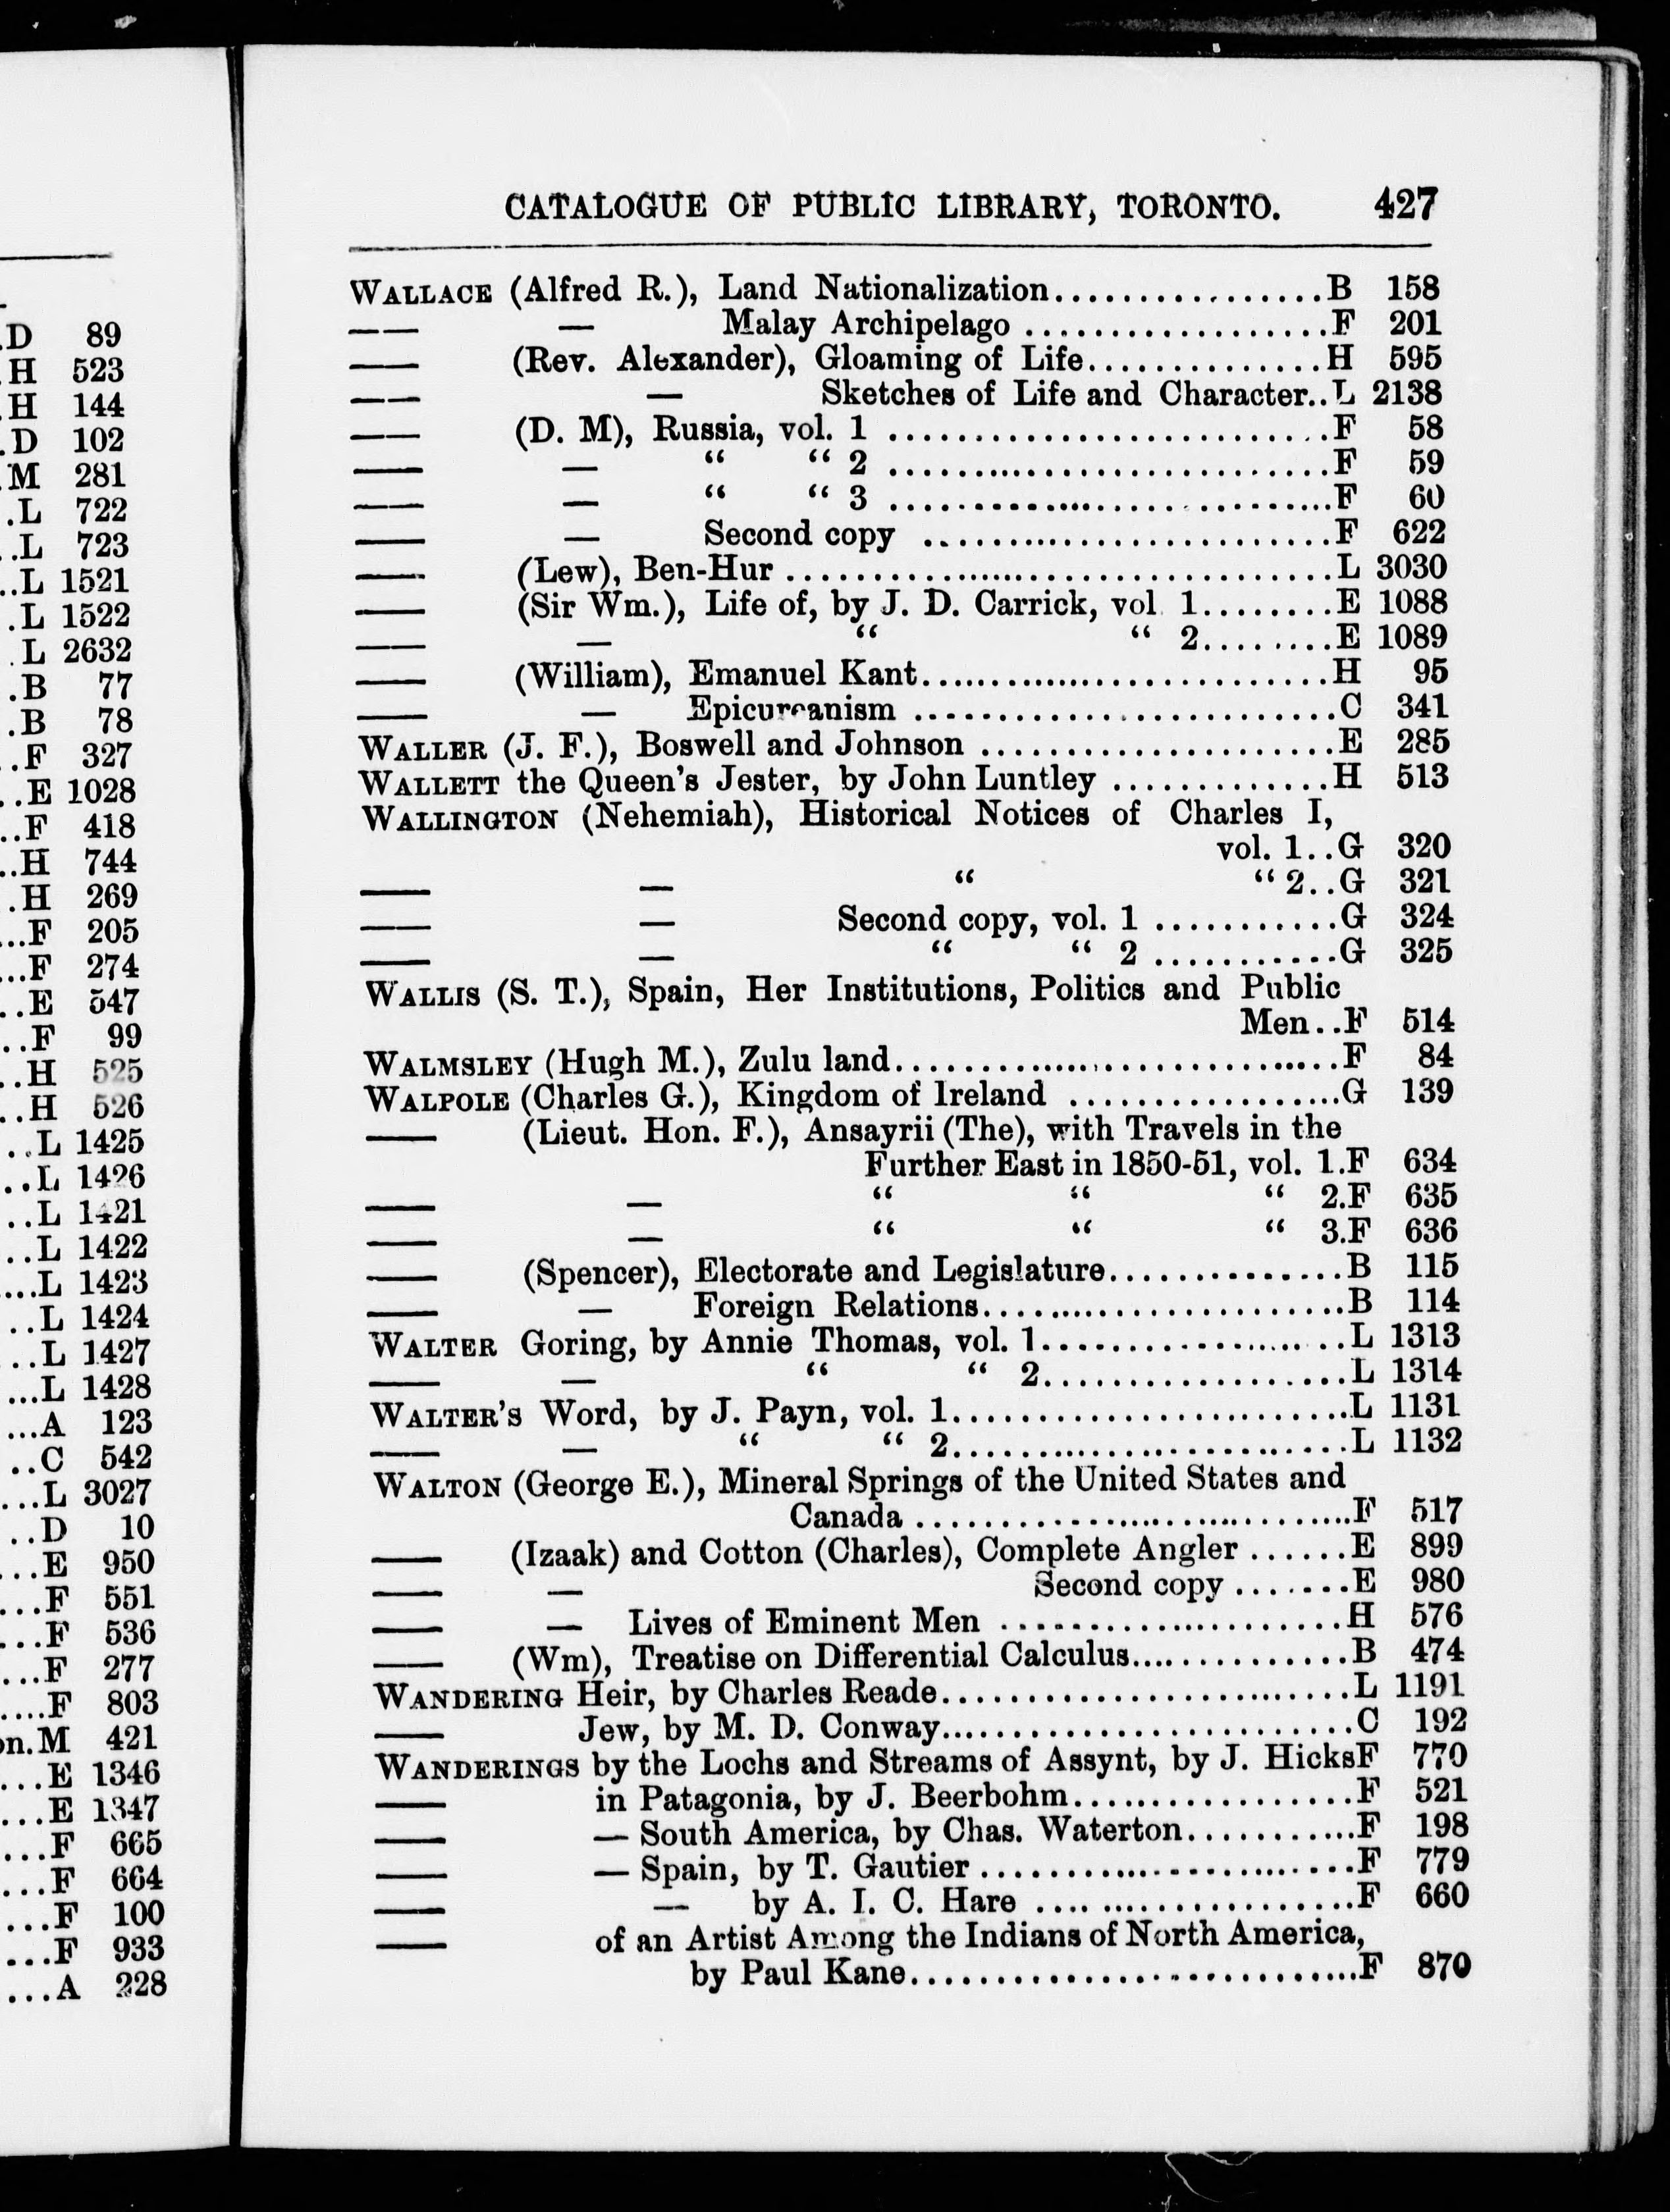 D 89
H 523
H 144
D 102
M 281
L 722
L 723
L 1521
L 1522
L 2632
B 77
B 78
F 327
E 1028
F 418
H 744
H 269
F 205
F 274
E 547
F 99
H 525
H 526
L 1425
L 1426
L 1421
L 1422
L 1423
L 1424
L 1427
L 1428
A 123
C 542
L 3027
D 10
E 950
F 551
F 536
F 277
F 803
on. M 421
E 1346
E 1347
F 665
F 664
F 100
F 933
A 228
CATALOGUE OF PUBLIC LIBRARY, TORONTO. 427
WALLACE (Alfred R.), Land Nationalization................B 158
—— — Malay Archipelago ..................F 201
—— (Rev. Alexander), Gloaming of Life..............H 595
—— — Sketches of Life and Character..L 2138
—— (D. M), Russia, vol. 1 ..........................F 58
—— — “ “ 2 ..........................F 59
—— — “ “ 3 ..........................F 60
—— — Second copy ........................F 622
—— (Lew), Ben-Hur ................................L 3030
—— (Sir Wm.), Life of, by J. D. Carrick, vol. 1........E 1088
—— — “ “ 2........E 1089
—— (William), Emanuel Kant........................H 95
—— — Epicureanism ........................C 341
WALLER (J. F.), Boswell and Johnson .....................E 285
WALLETT the Queen's Jester, by John Luntley .............H 513
WALLINGTON (Nehemiah), Historical Notices of Charles I,
vol. 1..G 320
—— — “ “ 2..G 321
—— — Second copy, vol. 1 ...........G 324
—— — “ “ 2 ...........G 325
WALLIS (S. T.), Spain, Her Institutions, Politics and Public
Men..F 514
WALMSLEY (Hugh M.), Zulu land..........................F 84
WALPOLE (Charles G.), Kingdom of Ireland ................G 139
—— (Lieut. Hon. F.), Ansayrii (The), with Travels in the
Further East in 1850-51, vol. 1.F 634
—— — “ “ “ 2.F 635
—— — “ “ “ 3.F 636
—— (Spencer), Electorate and Legislature..............B 115
—— — Foreign Relations.....................B 114
WALTER Goring, by Annie Thomas, vol. 1..................L 1313
—— — “ “ 2..................L 1314
WALTER'S Word, by J. Payn, vol. 1........................L 1131
—— — “ “ 2........................L 1132
WALTON (George E.), Mineral Springs of the United States and
Canada ..........................F 517
—— (Izaak) and Cotton (Charles), Complete Angler ......E 899
—— — Second copy .......E 980
—— — Lives of Eminent Men ....................H 576
—— (Wm), Treatise on Differential Calculus.............B 474
WANDERING Heir, by Charles Reade........................L 1191
—— Jew, by M. D. Conway........................C 192
WANDERINGS by the Lochs and Streams of Assynt, by J. HicksF 770
—— in Patagonia, by J. Beerbohm.................F 521
—— — South America, by Chas. Waterton..........F 198
—— — Spain, by T. Gautier ......................F 779
—— — by A. I. C. Hare ...................F 660
—— of an Artist Among the Indians of North America,
by Paul Kane...........................F 870